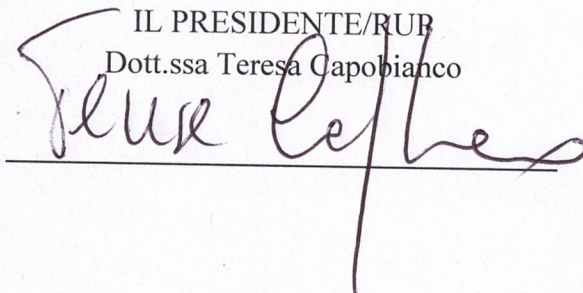 IL PRESIDENTE/RUP
Dott.ssa Teresa Capobianco